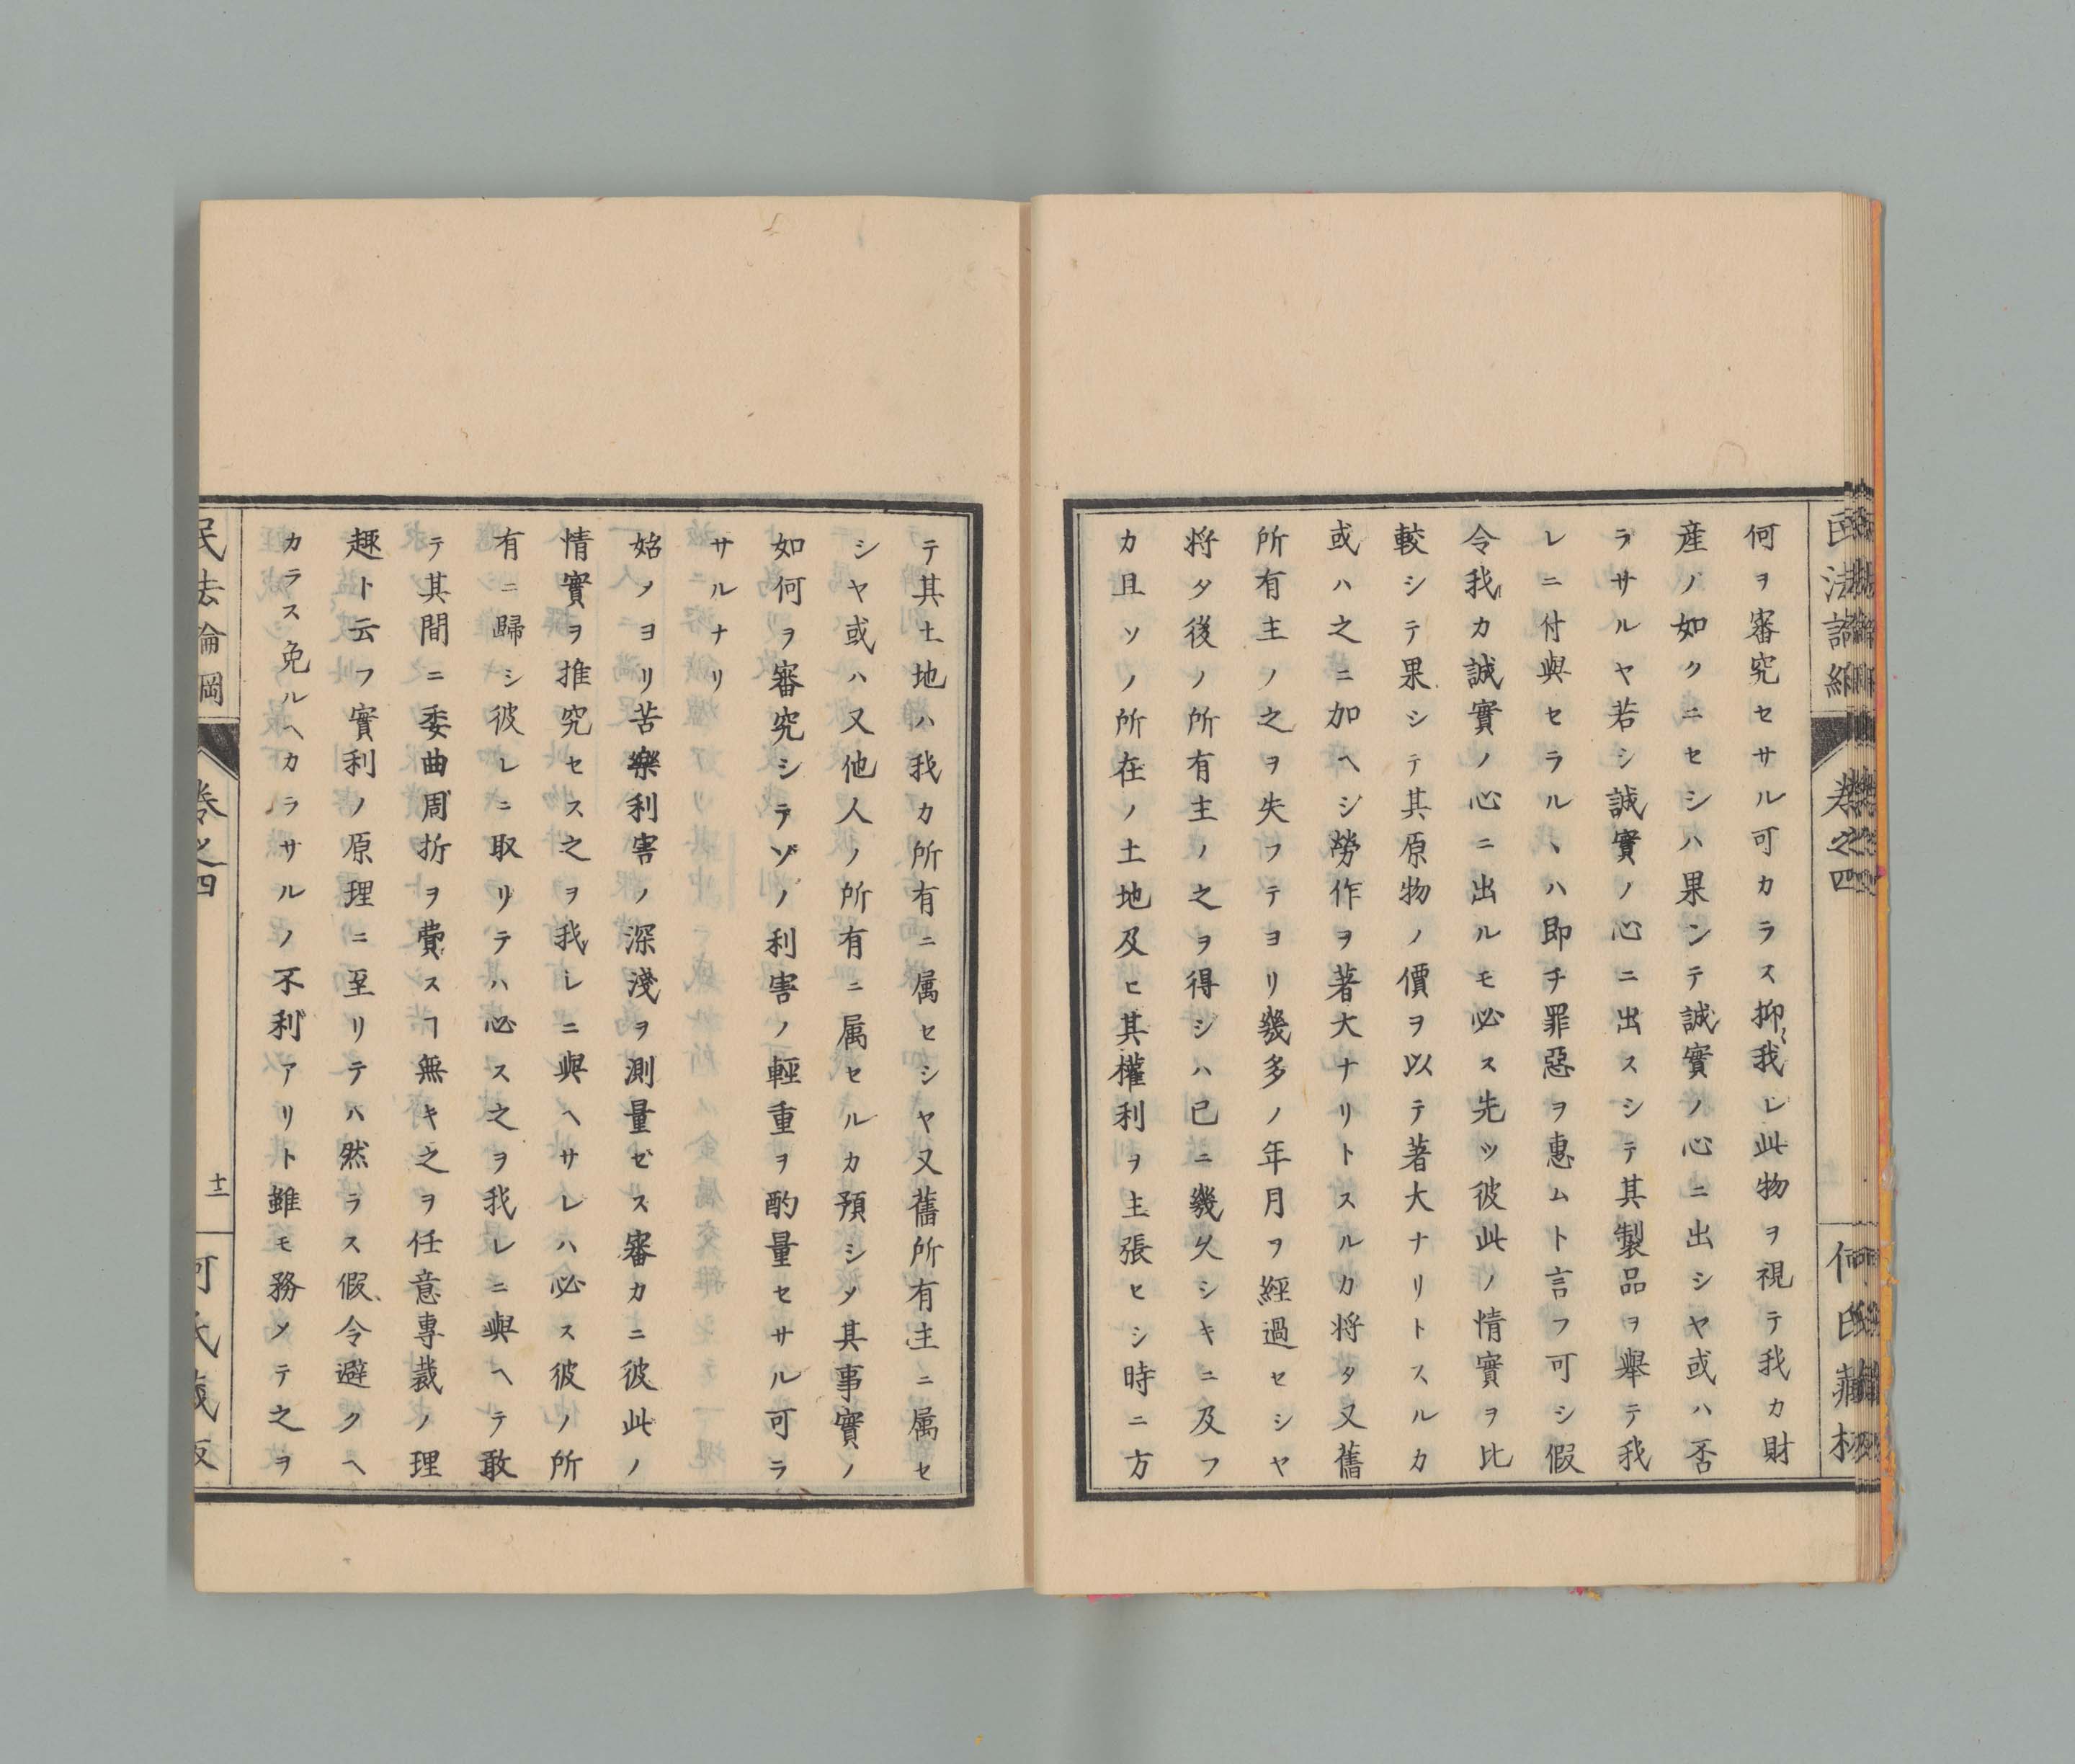 何ヲ審究セサル可カラス抑我レ此物ヲ視テ我カ財
産ノ如クニセシハ果シテ誠實ノ心ニ出シヤ或ハ否
ラサルヤ若シ誠實ノ心ニ出スシテ其製品ヲ舉テ我
レニ付與セラルヽハ即チ罪惡ヲ惠ムト言フ可シ假
令我カ誠實ノ心ニ出ルモ必ス先ツ彼此ノ情實ヲ比
較シテ果シテ其原物ノ價ヲ以テ著大ナリトスルカ
或ハ之ニ加ヘシ勞作ヲ著大ナリトスルカ將タ又舊
所有主ノ之ヲ失フテヨリ幾多ノ年月ヲ經過セシヤ
將タ後ノ所有主ノ之ヲ得シハ已ニ幾久シキニ及フ
カ且ソノ所在ノ土地及ヒ其權利ヲ主張セシ時ニ方
テ其土地ハ我カ所有ニ属セシヤ又舊所有主ニ属セ
シヤ或ハ又他人ノ所有ニ属セルカ預シメ其事實ノ
如何ヲ審究シテソノ利害ノ輕重ヲ酌量セサル可ラ
サルナリ
始ノヨリ苦樂利害ノ深淺ヲ測量セス審カニ彼此ノ
情實ヲ推究セス之ヲ我レニ與ヘサレハ必ス彼ノ所
有ニ歸シ彼レニ取リテハ必ス之ヲ我レニ與ヘテ敢
テ其間ニ委曲周折ヲ費スヿ無キ之ヲ任意專裁ノ理
趣ト云フ實利ノ原理ニ至リテハ然ラス假令避クヘ
カラス免ルヘカラサルノ不利アリト雖モ務メテ之ヲ
民法論綱
卷之四
十二
何氏藏板